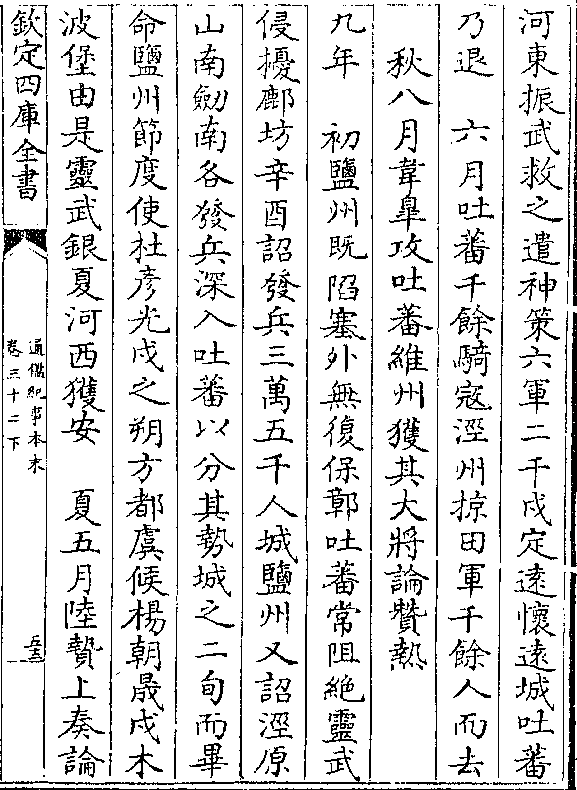 河東振武救之遣神策六軍二千戍定遠懷遠城吐蕃
乃退　六月吐蕃千餘騎寇涇州掠田軍千餘人而去
秋八月韋臯攻吐蕃維州獲其大將論贊熱
九年　初鹽州既陷塞外無復保鄣吐蕃常阻絶靈武
侵擾鄜坊辛酉詔發兵三萬五千人城鹽州又詔涇原
山南劒南各發兵深入吐蕃以分其勢城之二旬而畢
命鹽州節度使杜彦光戍之朔方都虞候楊朝晟戍木
波堡由是靈武銀夏河西獲安　夏五月陸贄上奏論
欽定四庫全書
通鑑紀事本末
卷三十二下
五三